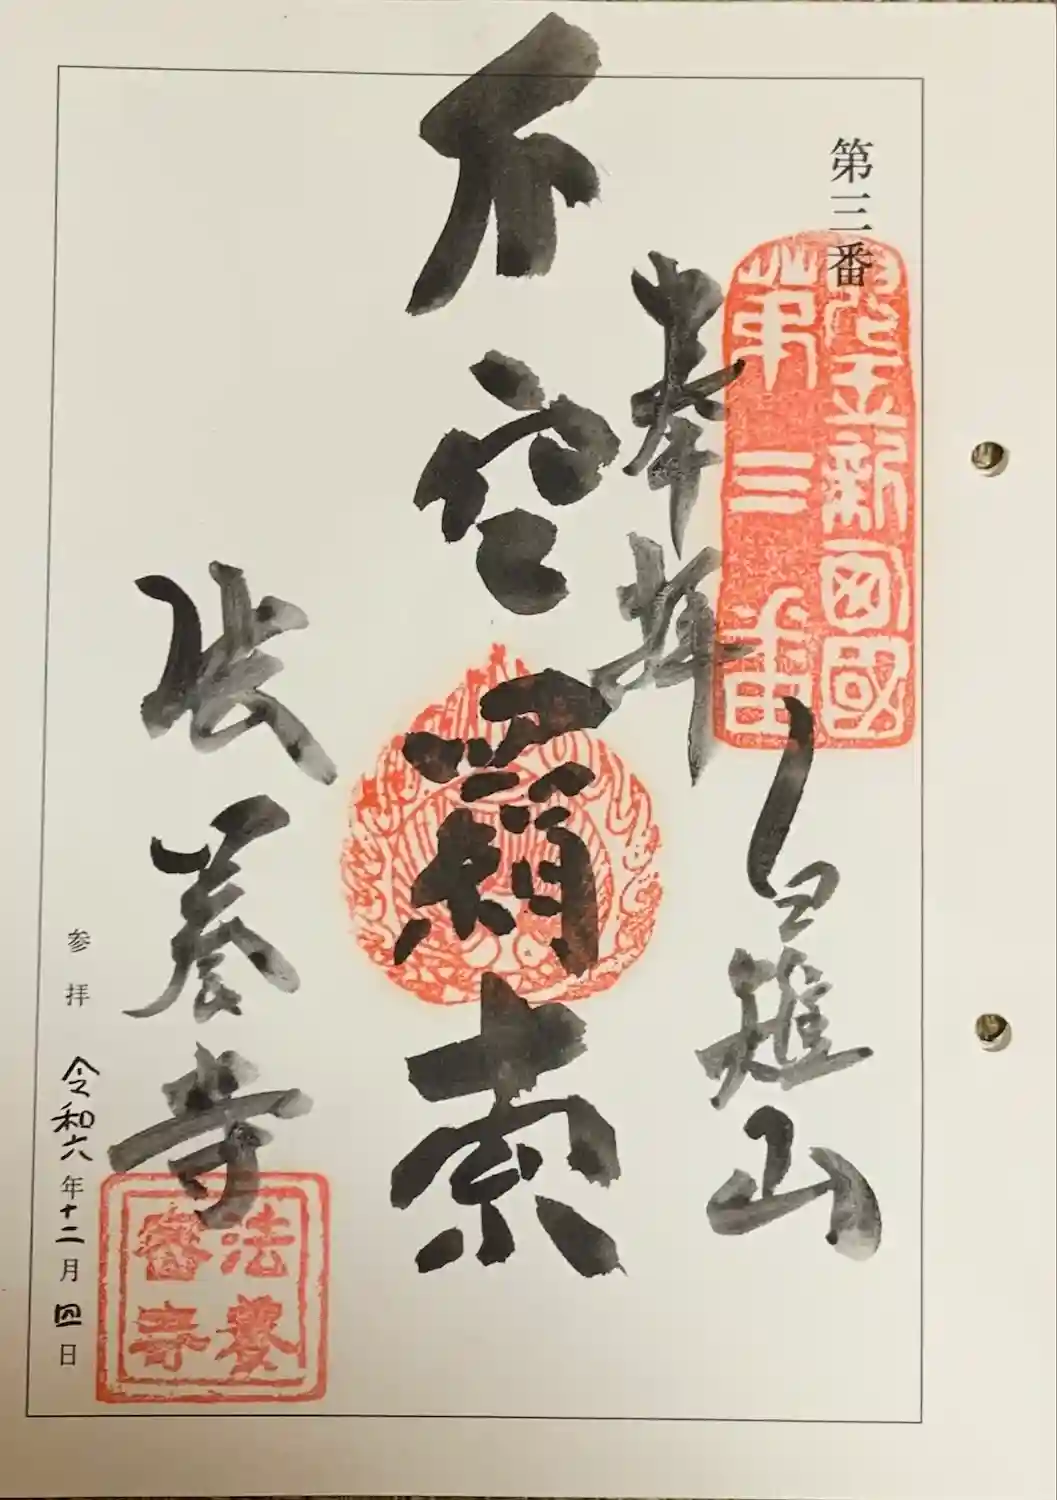 第三番
新四国
第三番
白雉山
奉拝
不空羂索
法養寺
法養寺
参拝 令和六年十二月四日